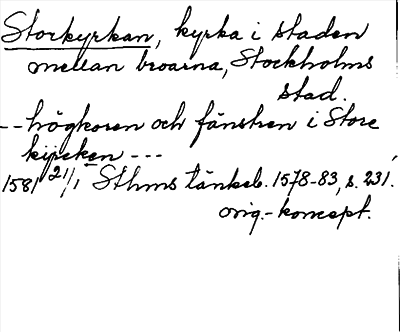 Storkyrkan, kyrka i staden
mellan broarna, Stockholms
stad.
-- högkoren och fänstren i Store
kijrcken ---
1581 21/1 Sthms tänkeb. 1578-83, s. 231.
orig.-koncept.